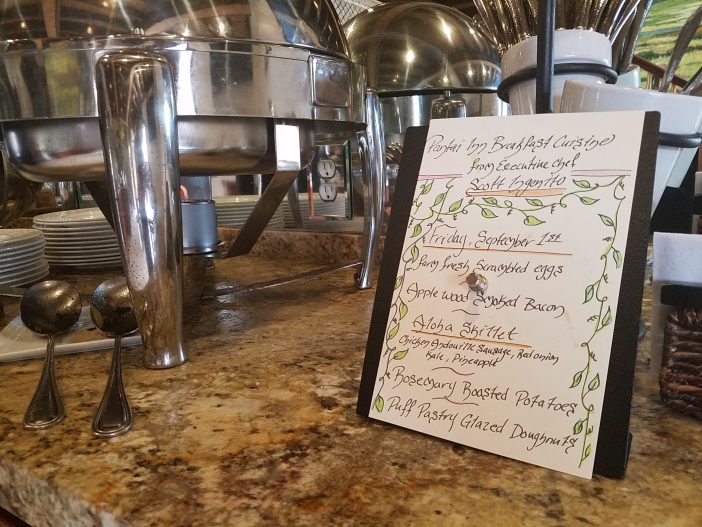 Pantai Inn Breakfast Cuisine
from Executive chef
Scott Ingenito
Friday, September 1st
farm fresh scrambled eggs
Apple wood Smoked Bacon
Aloha Skillet
Chicken Andouille Sausage, Red onion
Kale, Pineapple
Rosemary Roasted Potatoes
Puff Pastry Glazed Doughnuts